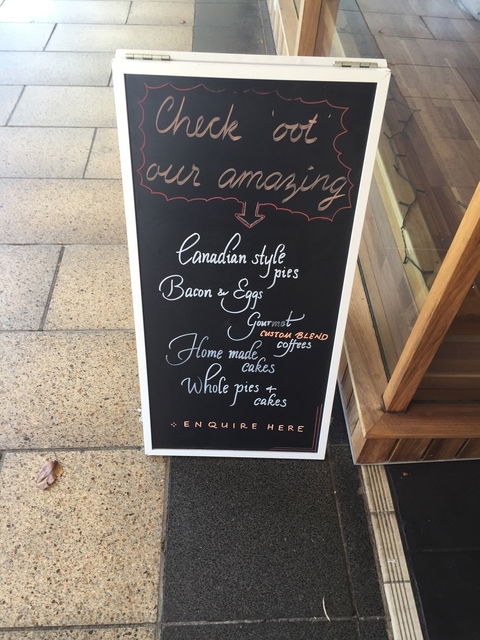 Check 'oot'
our amazing
Canadian style
pies
Bacon & Eggs
Gourmet
CUSTOM BLEND
coffees
Home made
cakes
Whole pies +
cakes
ENQUIRE HERE